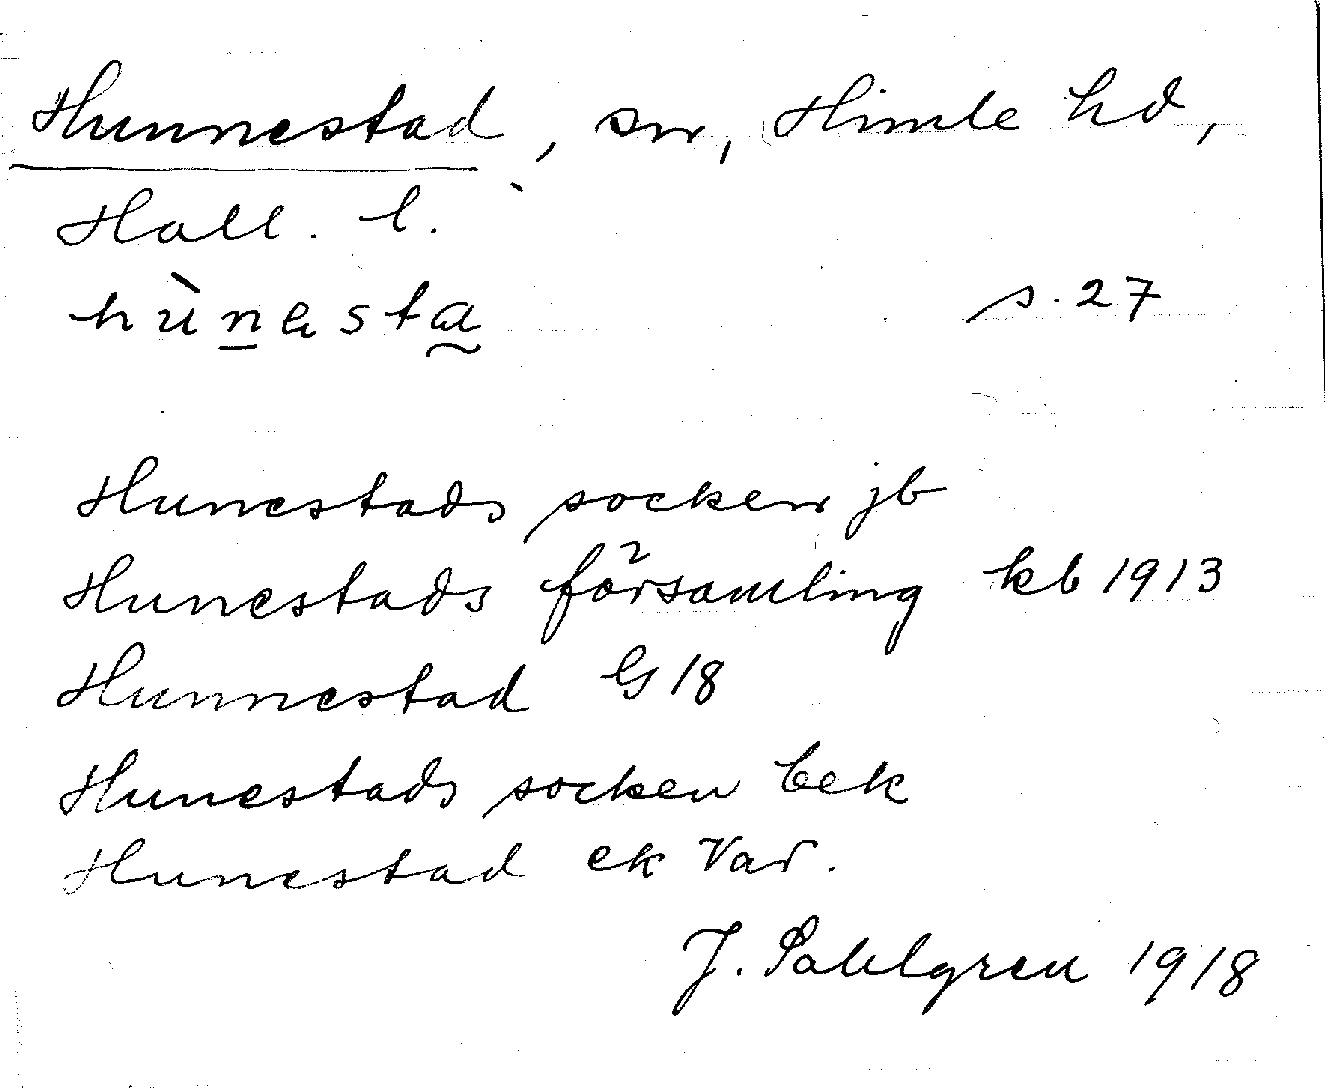 Hunnestad, sn, Himle hd,
Hall. l.
hùnəsta s. 27
Hunestads socken jb
Hunestads församling kb 1913
Hunnestad GS 18
Hunestads socken bek
Hunestad ek Var.
J. Sahlgren 1918